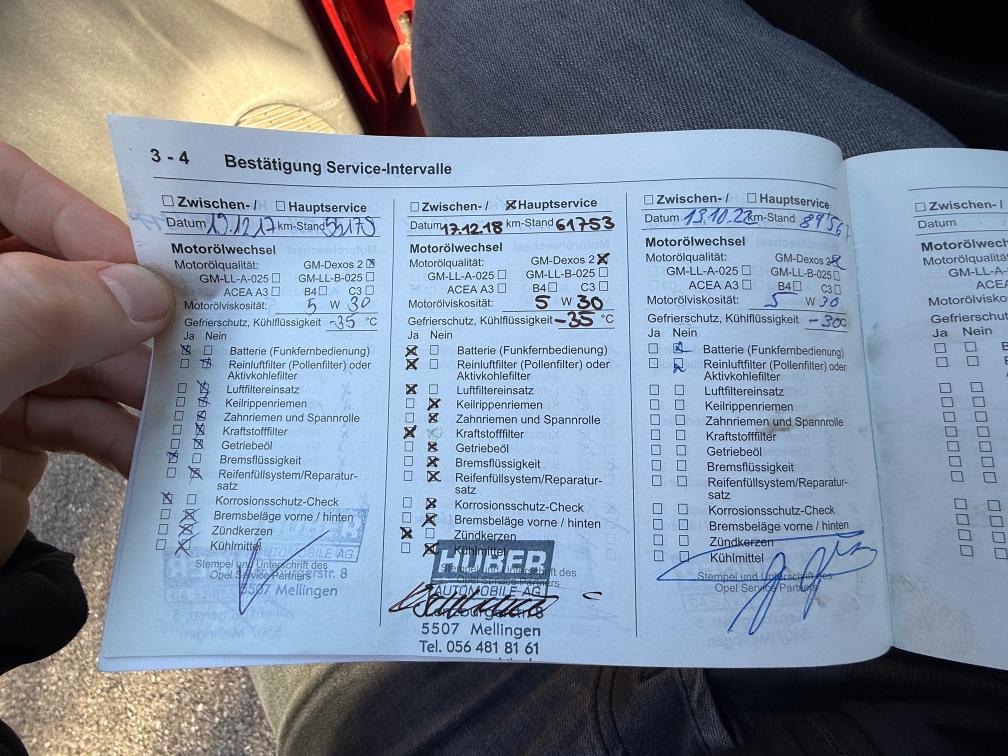 3 - 4 Bestätigung Service-Intervalle
Zwischen- / Hauptservice
Datum 19.12.17 km-Stand
Motorölwechsel
Motorölqualität: GM-Dexos 2
GM-LL-A-025 GM-LL-B-025
ACEA A3 B4 C3
Motorölviskosität: 5 W 30
Gefrierschutz, Kühlflüssigkeit -35 °C
Ja Nein
Batterie (Funkfernbedienung)
Reinluftfilter (Pollenfilter) oder
Aktivkohlefilter
Luftfiltereinsatz
Keilrippenriemen
Zahnriemen und Spannrolle
Kraftstofffilter
Getriebeöl
Bremsflüssigkeit
Reifenfüllsystem/Reparatur-
satz
Korrosionsschutz-Check
Bremsbeläge vorne / hinten
Zündkerzen
Kühlmittel
AUTOMOBILE AG
Stempel und Unterschrift des
Opel Service Partners
5507 Mellingen
Zwischen- / Hauptservice
Datum 17.12.18 km-Stand 61753
Motorölwechsel
Motorölqualität: GM-Dexos 2
GM-LL-A-025 GM-LL-B-025
ACEA A3 B4 C3
Motorölviskosität: 5 W 30
Gefrierschutz, Kühlflüssigkeit -35 °C
Ja Nein
Batterie (Funkfernbedienung)
Reinluftfilter (Pollenfilter) oder
Aktivkohlefilter
Luftfiltereinsatz
Keilrippenriemen
Zahnriemen und Spannrolle
Kraftstofffilter
Getriebeöl
Bremsflüssigkeit
Reifenfüllsystem/Reparatur-
satz
Korrosionsschutz-Check
Bremsbeläge vorne / hinten
Zündkerzen
Kühlmittel
HUBER
Stempel und Unterschrift des
Opel Service Partners
AUTOMOBILE AG
5507 Mellingen
Tel. 056 481 81 61
Zwischen- / Hauptservice
Datum 13.10.22 km-Stand 89567
Motorölwechsel
Motorölqualität: GM-Dexos 2
GM-LL-A-025 GM-LL-B-025
ACEA A3 B4 C3
Motorölviskosität: 5 W 30
Gefrierschutz, Kühlflüssigkeit -30 °C
Ja Nein
Batterie (Funkfernbedienung)
Reinluftfilter (Pollenfilter) oder
Aktivkohlefilter
Luftfiltereinsatz
Keilrippenriemen
Zahnriemen und Spannrolle
Kraftstofffilter
Getriebeöl
Bremsflüssigkeit
Reifenfüllsystem/Reparatur-
satz
Korrosionsschutz-Check
Bremsbeläge vorne / hinten
Zündkerzen
Kühlmittel
Stempel und Unterschrift des
Opel Service Partners
Zwischen- /
Datum
Motorölwech
Motorölqualität:
GM-LL-A
ACE
Motorölviskosit
Gefrierschut
Ja Nein